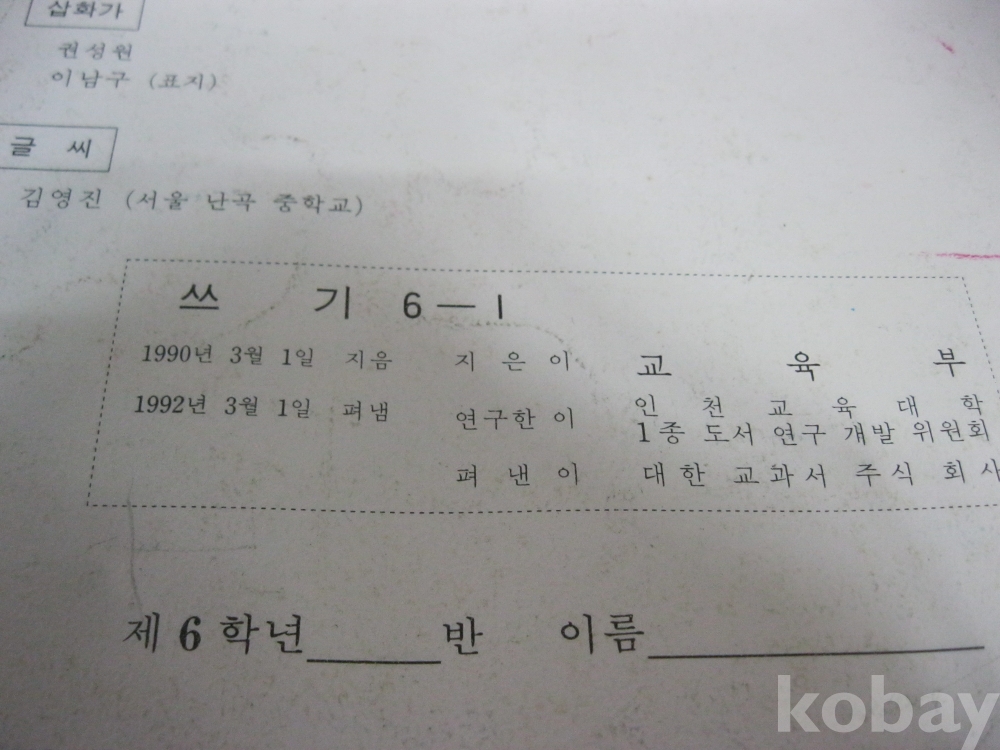 삽화가
권성원
이남구 (표지)
글 씨
김영진 (서울 난곡 중학교)
쓰 기 6—1
1990년 3월 1일 지음 지 은 이 교 육 부
1992년 3월 1일 펴냄 연구한 이 인 천 교 육 대 학
1종 도서 연구 개발 위원회
펴 낸 이 대한 교과서 주식 회사
제 6 학년 반 이름
kobay